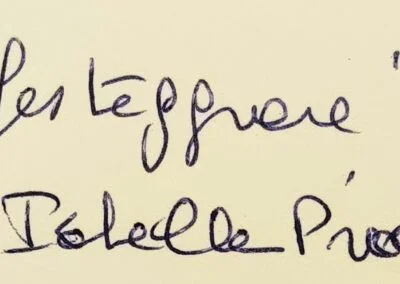 festeggiare
Isabella